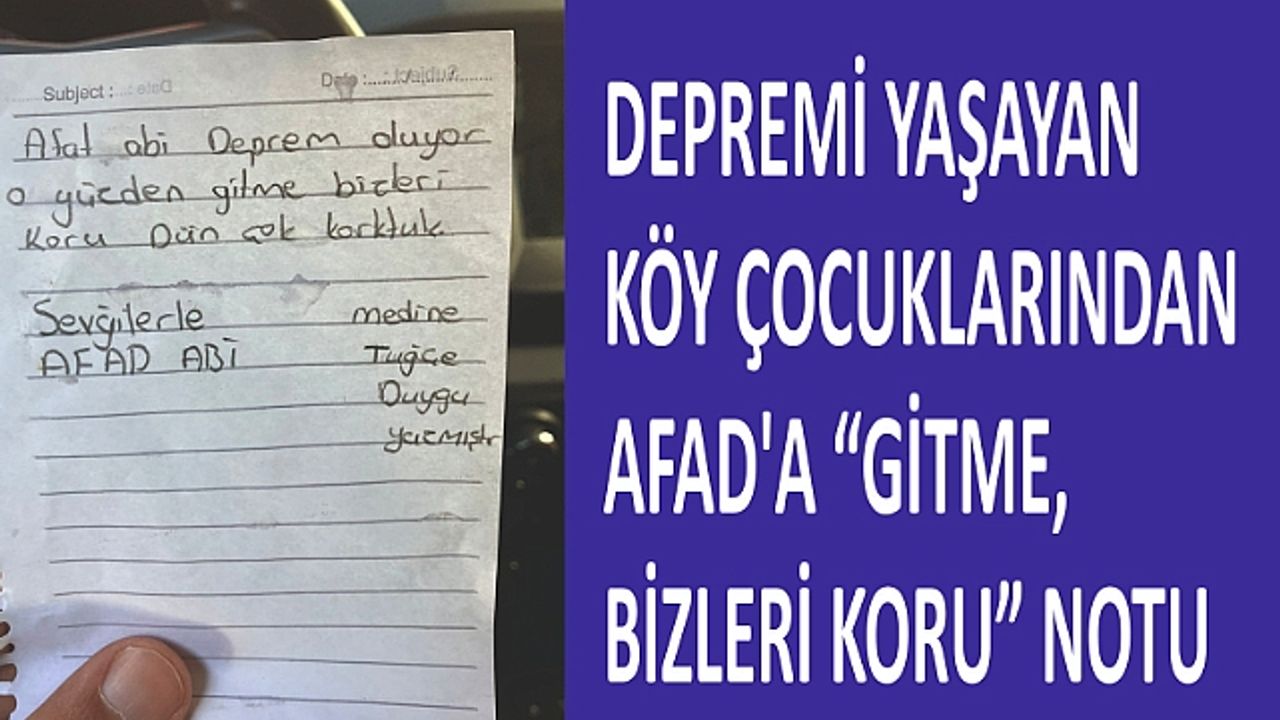 Subject :
Date :
Afat abi Deprem oluyor
o yüzden gitme bizleri
Koru Dün çok korktuk
Sevğilerle medine
AFAD ABİ Tuğçe
Duygu
yazmıştr
DEPREMİ YAŞAYAN
KÖY ÇOCUKLARINDAN
AFAD'A “GİTME,
BİZLERİ KORU” NOTU